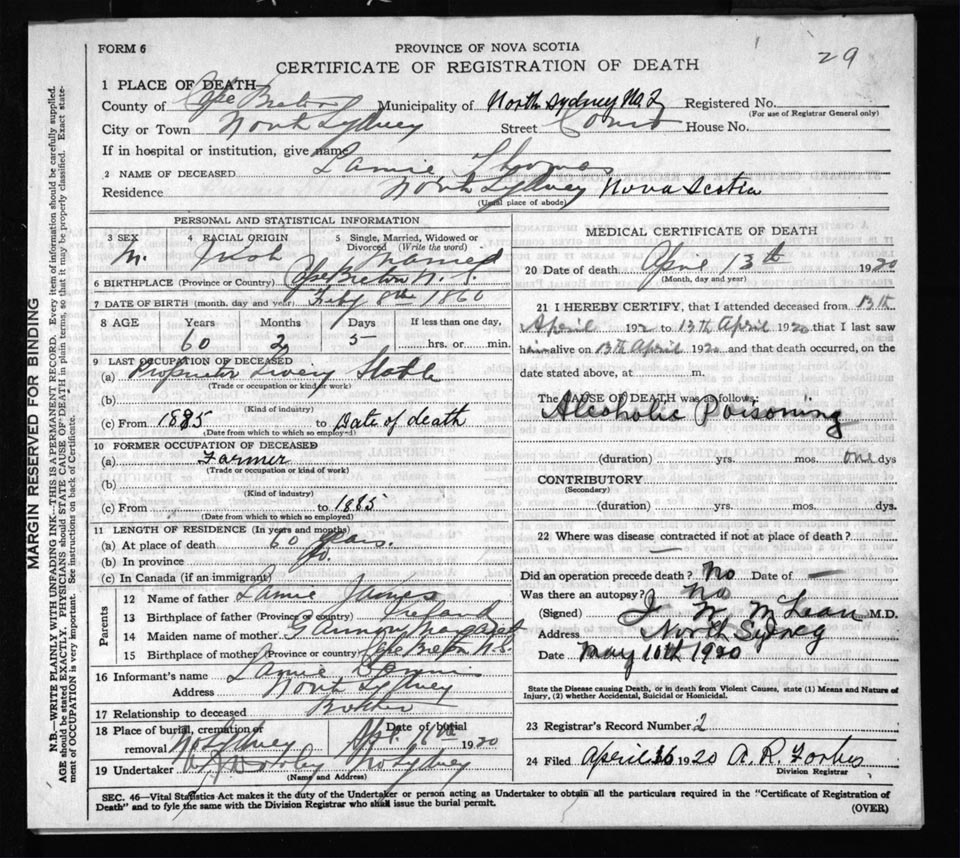 FORM 6
PROVINCE OF NOVA SCOTIA
29
CERTIFICATE OF REGISTRATION OF DEATH
1 PLACE OF DEATH
County of Cape Breton Municipality of North Sydney No. 2 Registered No.
(For use of Registrar General only)
City or Town North Sydney Street Court House No.
If in hospital or institution, give name
2 NAME OF DECEASED Lamie Thomas
Residence North Sydney Nova Scotia
(Usual place of abode)
PERSONAL AND STATISTICAL INFORMATION
3 SEX 4 RACIAL ORIGIN 5 Single, Married, Widowed or Divorced (Write the word)
M. Irish Married
6 BIRTHPLACE (Province or Country) Cape Breton N.S.
7 DATE OF BIRTH (month, day and year) Feby 8th 1860
8 AGE Years Months Days If less than one day,
60 2 5 hrs. or min.
9 LAST OCCUPATION OF DECEASED
(a) Proprietor Livery Stable
(Trade or occupation or kind of work)
(b)
(Kind of industry)
(c) From 1885 to Date of death
(Date from which to which so employed)
10 FORMER OCCUPATION OF DECEASED
(a) Farmer
(Trade or occupation or kind of work)
(b)
(Kind of industry)
(c) From to 1885
(Date from which to which so employed)
11 LENGTH OF RESIDENCE (In years and months)
(a) At place of death 60 years.
(b) In province do.
(c) In Canada (if an immigrant)
Parents
12 Name of father Lamie James
13 Birthplace of father (Province or country) Ireland
14 Maiden name of mother Gannon Margaret
15 Birthplace of mother (Province or country) Cape Breton N.S.
16 Informant's name Lamie
Address North Sydney
17 Relationship to deceased Brother
18 Place of burial, cremation or removal No Sydney Date of burial Apr. 16th 1920
19 Undertaker No Sydney
(Name and Address)
MEDICAL CERTIFICATE OF DEATH
20 Date of death April 13th 1920
(Month, day and year)
21 I HEREBY CERTIFY, that I attended deceased from 13th
April 192 to 13th April 1920 that I last saw
him alive on 13th April 1920 and that death occurred, on the
date stated above, at m.
The CAUSE OF DEATH was as follows:
Alcoholic Poisoning
(duration) yrs. mos. one dys
CONTRIBUTORY
(Secondary)
(duration) yrs. mos. dys.
22 Where was disease contracted if not at place of death?
—
Did an operation precede death? No Date of —
Was there an autopsy? No
(Signed) J W McLean M.D.
Address North Sydney
Date May 10th 1920
State the Disease causing Death, or in death from Violent Causes, state (1) Means and Nature of
Injury, (2) whether Accidental, Suicidal or Homicidal.
23 Registrar's Record Number 2
24 Filed April 16 1920 A. R. Forbes
Division Registrar
SEC. 46—Vital Statistics Act makes it the duty of the Undertaker or person acting as Undertaker to obtain all the particulars required in the "Certificate of Registration of
Death" and to fyle the same with the Division Registrar who shall issue the burial permit.
(OVER)
MARGIN RESERVED FOR BINDING
N.B.—WRITE PLAINLY WITH UNFADING INK—THIS IS A PERMANENT RECORD. Every item of information should be carefully supplied.
AGE should be stated EXACTLY. PHYSICIANS should STATE CAUSE OF DEATH in plain terms, so that it may be properly classified. Exact statement of OCCUPATION is very important. See instructions on back of Certificate.